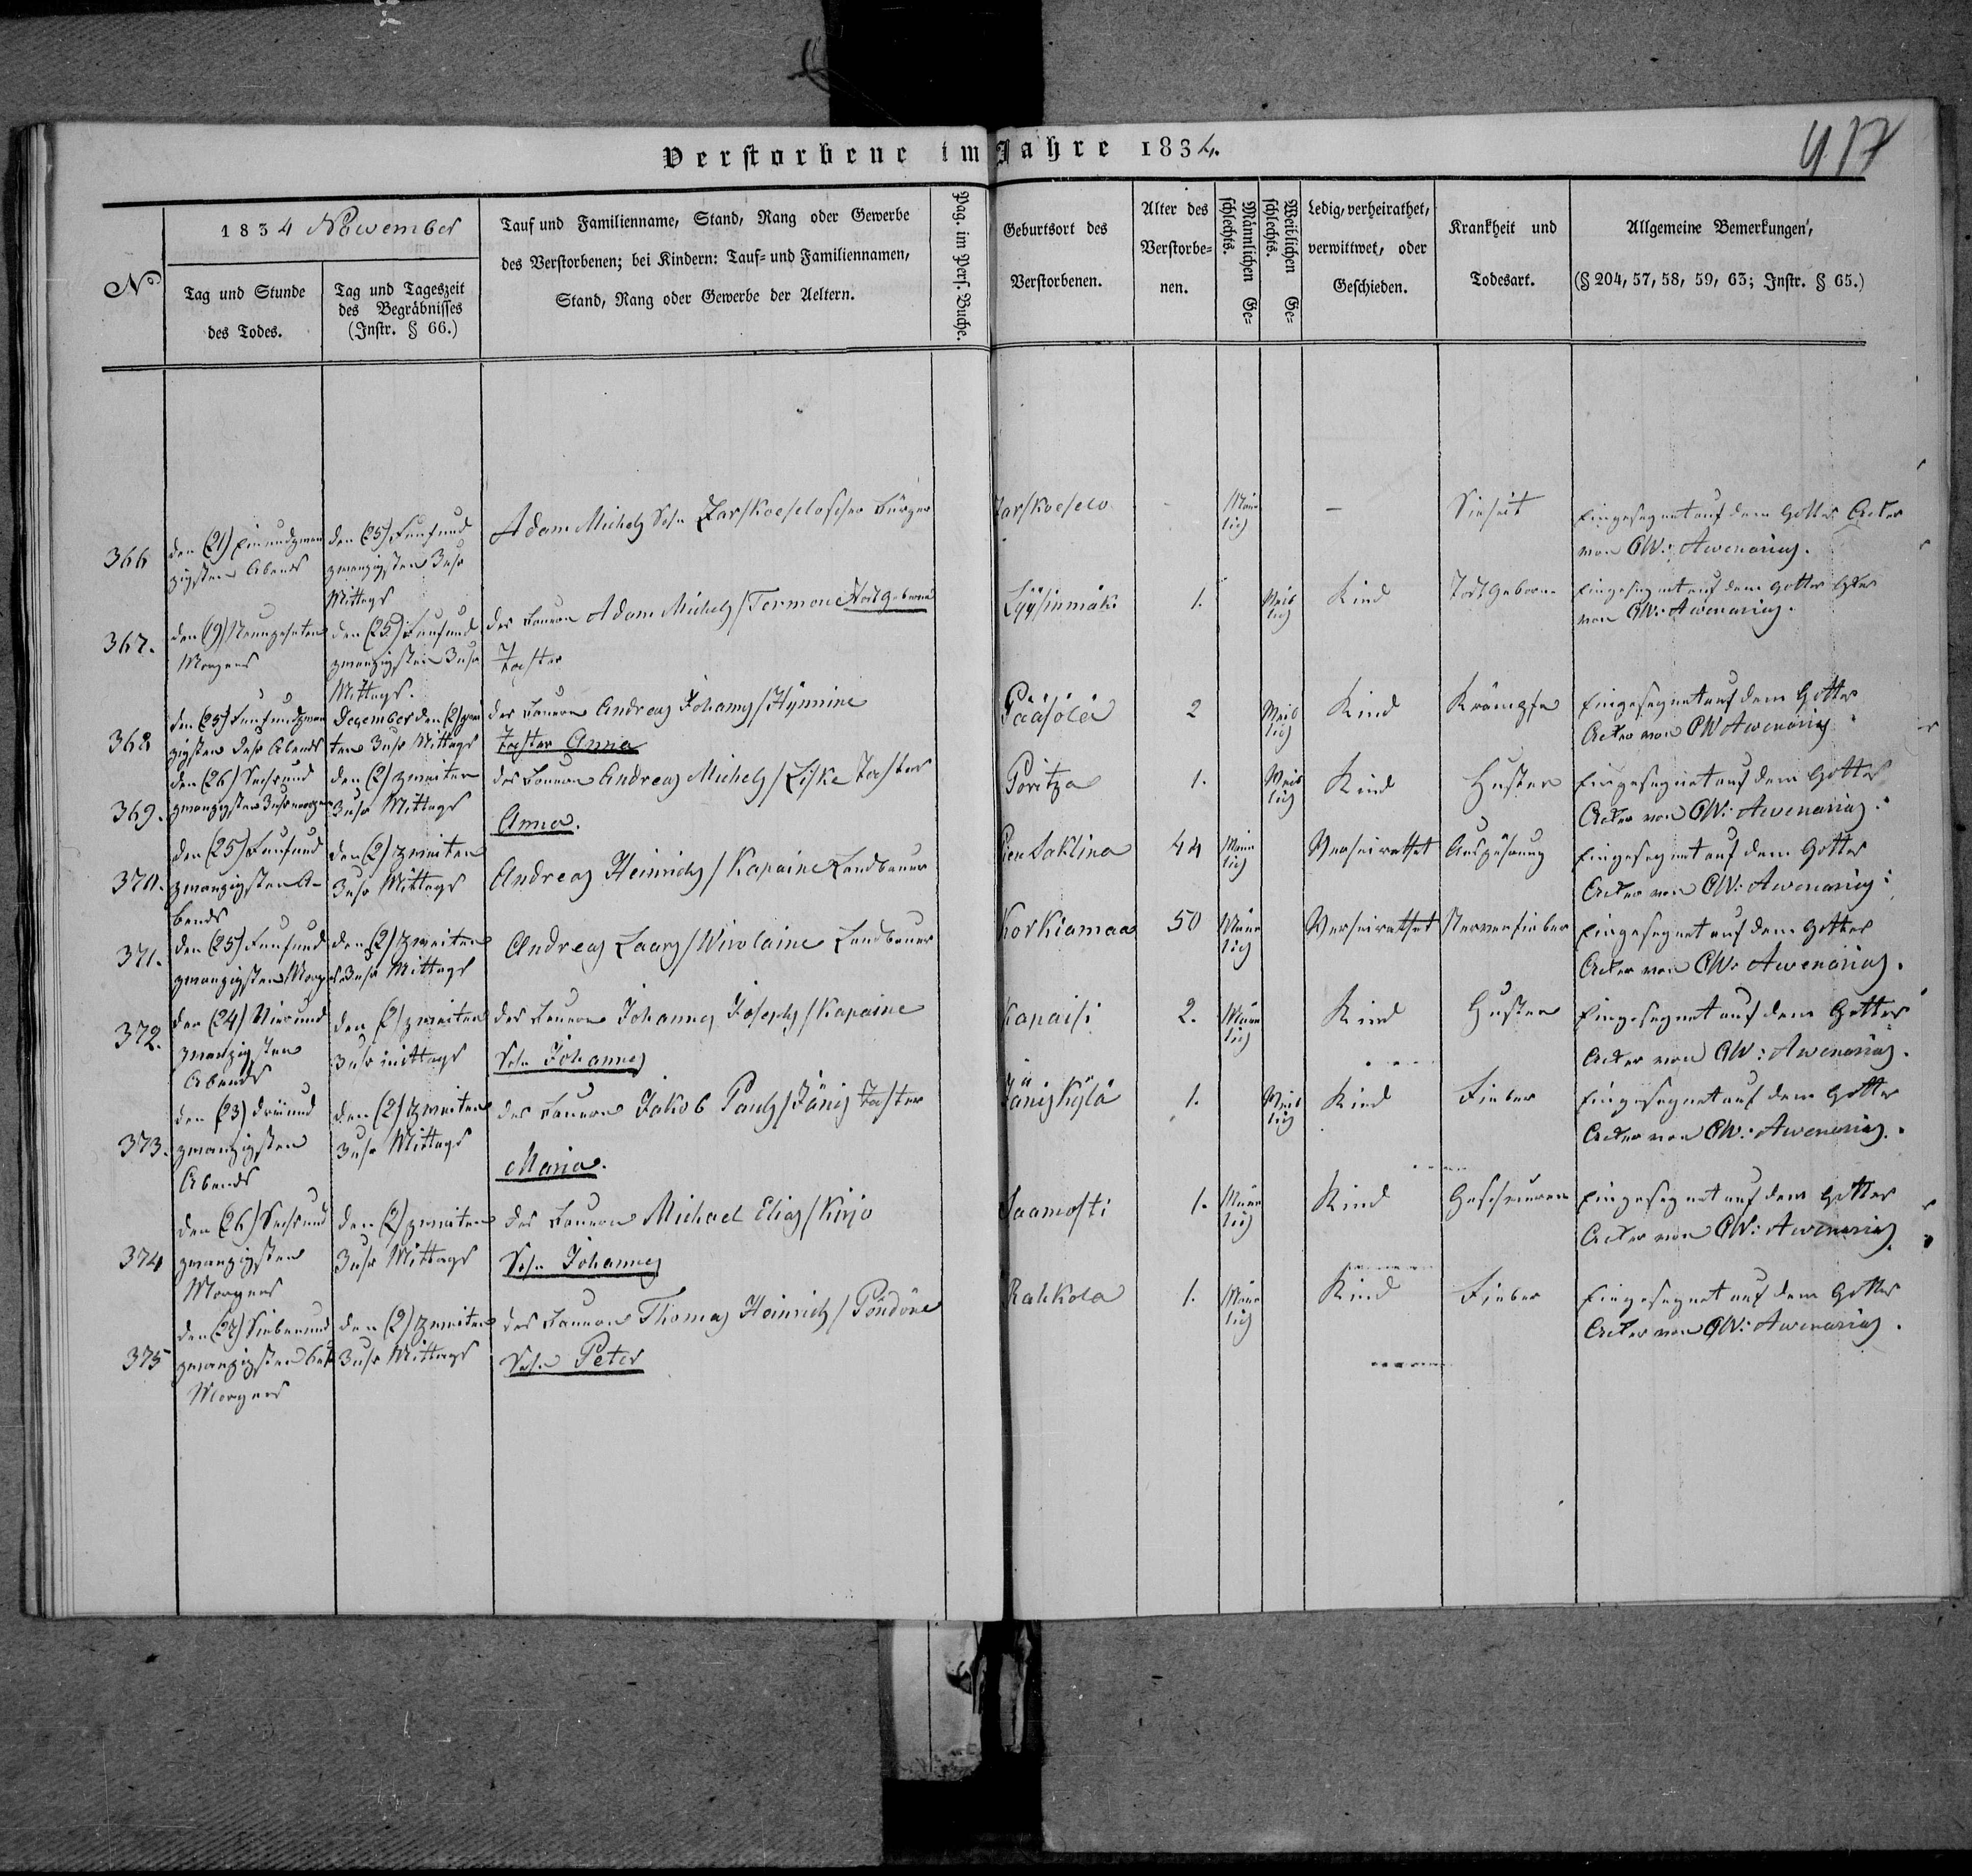 Verstorbene im Jahre 1834.
417
No
1834 November
Tag und Stunde
des Todes.
Tag und Tageszeit
des Begräbnisses
(Instr. § 66.)
Tauf und Familienname, Stand, Rang oder Gewerbe
des Verstorbenen; bei Kindern: Tauf- und Familiennamen,
Stand, Rang oder Gewerbe der Aeltern.
Pag. im Pers. Buche.
Geburtsort des
Verstorbenen.
Alter des
Verstorbe-
nen.
Männlichen Ge-
schlechts.
Weiblichen Ge-
schlechts.
Ledig, verheirathet,
verwittwet, oder
Geschieden.
Krankheit und
Todesart.
Allgemeine Bemerkungen,
(§ 204, 57, 58, 59, 63; Instr. § 65.)
366
den (21) Einundzwan
zigsten Abends
den (25) Fünfund
zwanzigsten 3 Uhr
Mittags
Adam Michels Sohn Zarskoeseloscher Bürger
Zarskoeselo
-
Män
lich
-
Eingesegnet auf dem Gottes Acker
von OW: Awenarius.
367.
den (19) Neunzehnten
Morgens
den (25) Fünfund
zwanzigsten 3 Uhr
Mittags.
des Bauern Adam Michels / Termone Todtgeborne
Tochter
Lyysinmäki
1.
Weib
lich
Kind
Todtgeborne
Eingesegnet auf dem Gottes Acker
von OW: Awenarius.
368
den (25) Fünfundzwan
zigsten Uhr Abends
December den (2) zwei
ten 3 Uhr Mittags
des Bauern Andreas Johanns / Hynnine
Tochter Anna
Pääsölä
2
Weib
lich
Kind
Krämpfe
Eingesegnet auf dem Gottes
Acker von OW Awenarius
369.
den (26) Sechsund
zwanzigsten 3 Uhr morgens
den (2) zweiten
3 Uhr Mittags
des Bauern Andreas Michels / Liske Tochter
Anna.
Poritza
1.
Weib
lich
Kind
Husten
Eingesegnet auf dem Gottes
Acker von OW: Awenarius.
370.
den (25) Fünfund
zwanzigsten A-
bends
den (2) zweiten
3 Uhr Mittags
Andreas Heinrichs / Kapaine Landbauer
Saklina
44
Män
lich
Verheirathet
Auszehrung
Eingesegnet auf dem Gottes
Acker von OW: Awenarius.
371.
den (25) Fünfund
zwanzigsten Morgens
den (2) zweiten
3 Uhr Mittags
Andreas Laars / Nicolaine Landbauer
Korkiamaa
50
Män
lich
Verheirathet
Nervenfieber
Eingesegnet auf dem Gottes
Acker von OW: Awenarius.
372.
den (24) Vierund
zwanzigsten
Abends
den (2) zweiten
3 Uhr mittags
des Bauern Johannes Josephs / Kapaine
Sohn Johannes
Kapaisi
2.
Män
lich
Kind
Husten
Eingesegnet auf dem Gottes
Acker von OW: Awenarius.
373.
den (23) dreiund
zwanzigsten
Abends
den (2) zweiten
3 Uhr Mittags
des Bauern Jakob Pauls / Jänis Tochter
Maria.
Jäniskylä
1.
Weib
lich
Kind
Fieber
Eingesegnet auf dem Gottes
Acker von OW: Awenarius.
374
den (26) Sechsund
zwanzigsten
Morgens
den (2) zweiten
3 Uhr Mittags
des Bauern Michael Elias / Kirjo
Sohn Johannes
Saamosti
1.
Män
lich
Kind
Geschwüren
Eingesegnet auf dem Gottes
Acker von OW: Awenarius
375
den (27) Siebenund
zwanzigsten
Morgens
den (2) zweiten
3 Uhr Mittags
des Bauern Thomas Heinrichs / Pöndöne
Sohn Peter
Rahkola
1.
Män
lich
Kind
Fieber
Eingesegnet auf dem Gottes
Acker von OW: Awenarius.